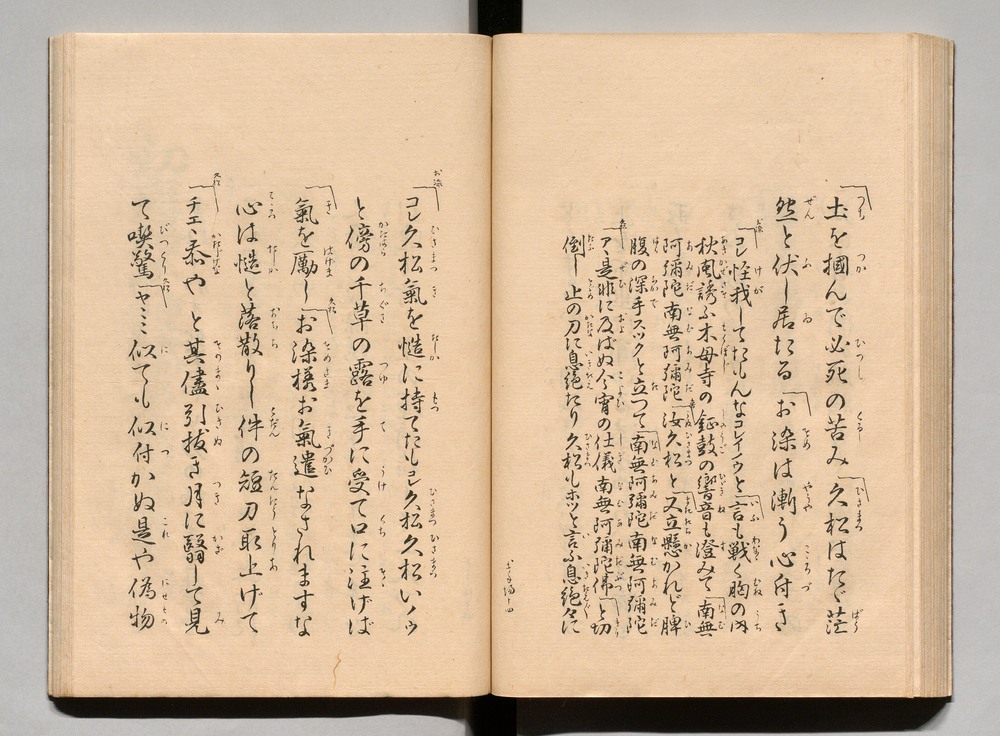 土を摑んで必死の苦み 久松はたゞ茫
然と伏し居たる お染は漸う心付き
コレ怪我してたもんなコレイノウと 言も戰く胸の内
秋風誘ふ木母寺の鉦鼓の響音も澄みて 南無
阿彌陀南無阿彌陀 汝久松と 又立懸かれど脾
腹の深手スックと立つて 南無阿彌陀南無阿彌陀
ア、是非に及ばぬ今宵の仕儀南無阿彌陀佛 と切
倒し 止の刀に息絶たり久松もホッと言ふ息絶々に
コレ久松氣を慥に持てたもコレ久松久松いノゥ
と傍の千草の露を手に受て口に注げば
氣を勵し お染様お氣遣なされますな
心は慥と落散りし件の短刀取上げて
チエヽ忝や と其儘引拔き月に翳して見
て喫驚 ヤミミ似ても似付かぬ是や僞物